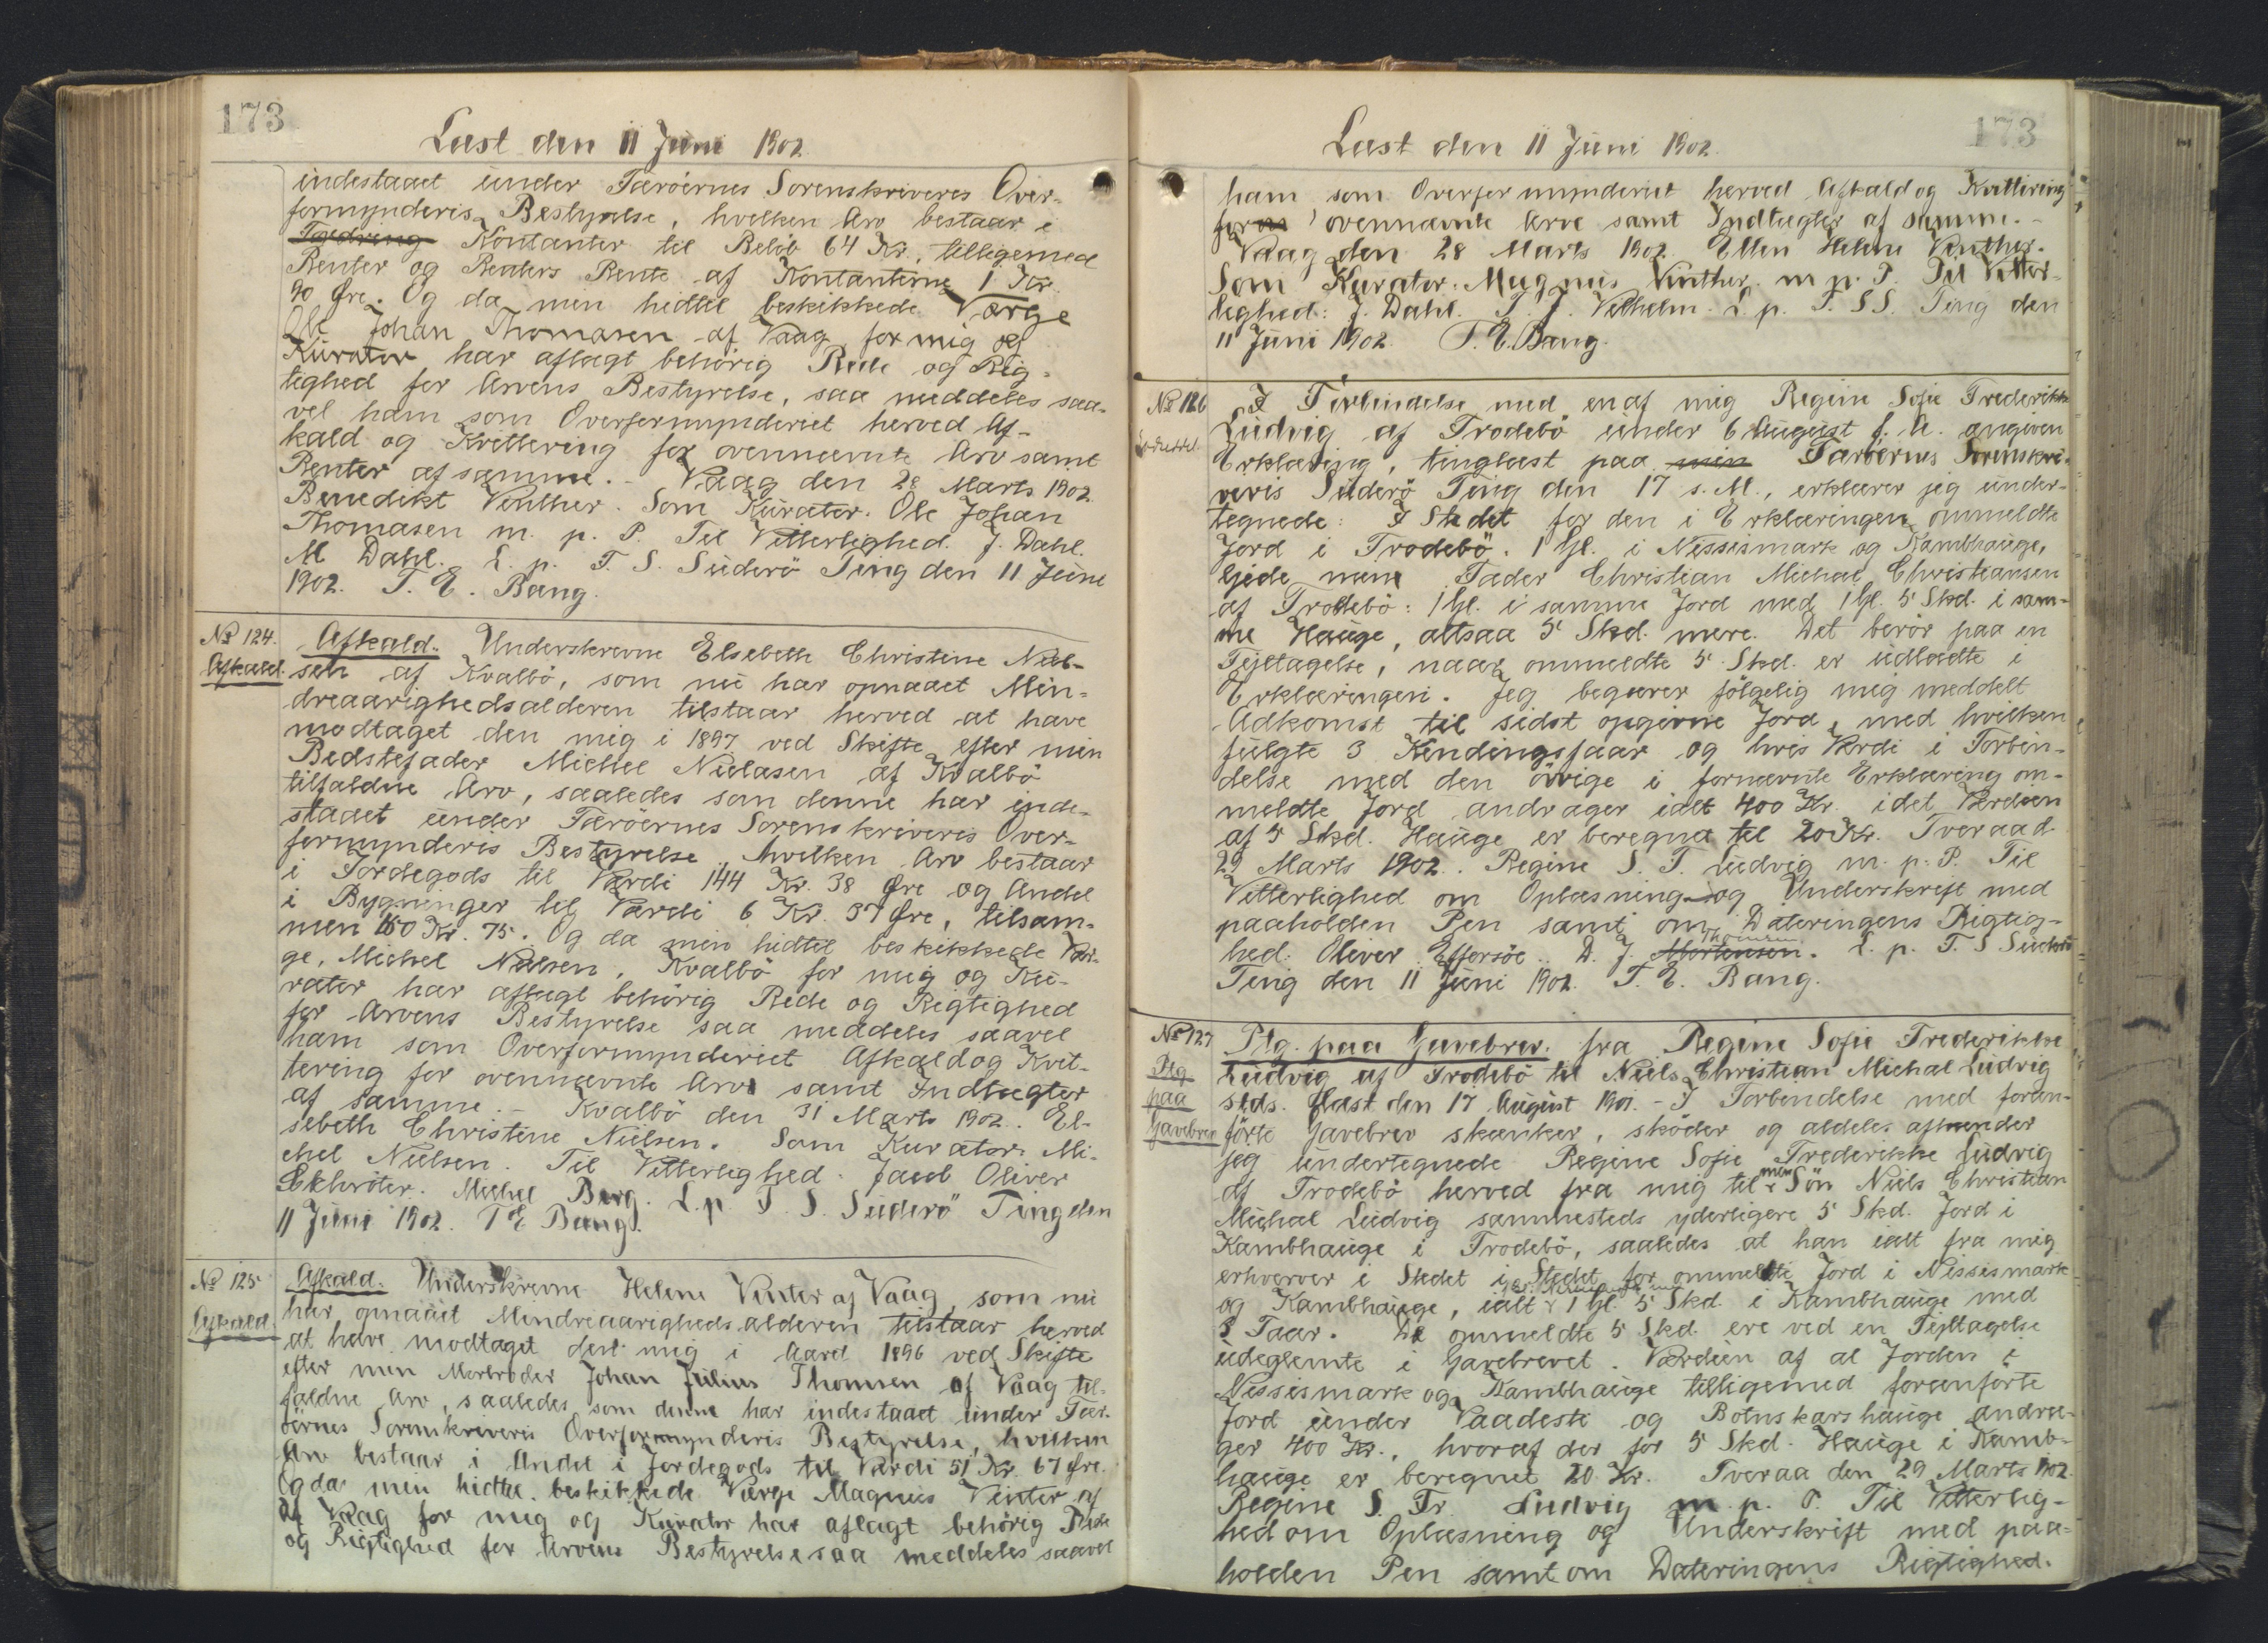 173
Læst den 11 Juni 1902.
indestaaet under Færöernes Sorenskriveres Over-
formynderis Bestyrelse, hvilken Arv bestaar i
Fordring Kontanter til Belöb 64 Kr., tilligemed
Renter og Renters Rente af Kontanterne 1 Kr.
90 Øre. Og da min hidtil beskikkede Værge
Ole Johan Thomasen af Vaag for mig og
Kurator har aflagt behörig Rede og Rig-
tighed for Arvens Bestyrelse, saa meddeles saa-
vel ham som Overformynderiet herved Af-
kald og Kvittering for ovennævnte Arv samt
Renter af samme. - Vaag den 28 Marts 1902.
Benedikt Vinther. Som Kurator. Ole Johan
Thomasen m. p. P. Til Vitterlighed. J. Dahl.
M Dahl. L. p. F. S. Suderö Ting den 11 Juni
1902. T. E. Bang.
№ 124.
Afkald.
Afkald. Underskrevne Elsebeth Christine Niel-
sen af Kvalbö, som nu har opnaaet Min-
dreaarighedsalderen tilstaar herved at have
modtaget den mig i 1897 ved Skifte efter min
Bedstefader Michel Nielasen af Kvalbö
tilfaldne Arv, saaledes som denne har inde-
staaet under Færöernes Sorenskriveris Over-
formynderis Bestyrelse, hvilken Arv bestaar
i Jordegods til Værdi 144 Kr. 38 Øre og Andel
i Bygninger til Værdi 6 Kr. 37 Øre, tilsam-
men 150 Kr. 75. Og da min hidtil beskikkede Vær-
ge, Michel Nielsen, Kvalbö for mig og Ku-
rator har aflagt behörig Rede og Rigtighed
for Arvens Bestyrelse saa meddeles saavel
ham som Overformynderiet Afkald og Kvit-
tering for ovennævnte Arv samt Indtægter
af samme. - Kvalbö den 31 Marts 1902. El-
sebeth Christine Nielsen. Som Kurator: Mi-
chel Nielsen. Til Vitterlighed. Jacob Oliver
Schröter. Michel Berg. L. p. F. S. Suderö Ting den
11 Juni 1902. T E Bang.
№ 125
Afkald.
Afkald. Underskrevne Helene Vinter af Vaag, som nu
har opnaaet Mindreaarighedsalderen tilstaar herved
at have modtaget den mig i Aaret 1896 ved Skifte
efter min Morbroder Johan Julius Thomsen af Vaag til-
faldne Arv, saaledes som denne har indestaaet under Fær-
öernes Sorenskriveris Overformynderis Bestyrelse, hvilken
Arv bestaar i Andel i Jordegods til Værdi 51 Kr. 67 Øre.
Og da min hidtil beskikkede Værge Magnus Vinter af
af Vaag for mig og Kurator har aflagt behörig Rede
og Rigtighed for Arvens Bestyrelse saa meddeles saavel
173
Læst den 11 Juni 1902.
ham som Overformynderiet herved Afkald og Kvittering
for ovennævnte Arve samt Indtægter af samme. -
Vaag den 28 Marts 1902. Ellen Helene Vinther.
Som Kurator. Magnus Vinther. m p. P. Til Vitter-
lighed: J. Dahl. T. J. Vilhelm. L. p. F. S S. Ting den
11 Juni 1902. T. E. Bang.
№ 126
I Forbindelse med en af mig Regine Sofie Frederikke
Ludvig af Trodebö under 6 August f. A. angiven
Erklæring, tinglæst paa min Færöernes Sorenskri-
veris Suderö Ting den 17 s. M., erklærer jeg under-
tegnede: I Stedet for den i Erklæringen ommeldte
Jord i Trodebö. 1 Gl. i Nissismark og Kambhauge,
ejede min Fader Christian Michal Christiansen
af Trodebö: 1 Gl. i samme Jord med 1 Gl. 5 Skd. i sam-
me Hauge, altsaa 5 Skd. mere. Det berör paa en
Fejltagelse, naar ommeldte 5 Skd. er udladte i
Erklæringen. Jeg begærer fölgelig mig meddelt
Adkomst til sidst opgivne Jord, med hvilken
fulgte 3 Kendingsfaar og hvis Værdi i Forbin-
delse med den övrige i fornævnte Erklæring om-
meldte Jord andrager ialt 400 Kr. idet Værdien
af 5 Skd. Hauge er beregnet til 20 Kr. Tveraa d.
29 Marts 1902. Regine S. F. Ludvig m. p. P. Til
Vitterlighed om Oplæsning og Underskrift med
paaholden Pen samt om Dateringens Rigtig-
hed: Oliver Effersöe. D. J. Mortensen. Thomsen L. p. F. S Suderö
Ting den 11 Juni 1902. T. E. Bang.
№ 127
Ptg.
paa
Gavebrev
Ptg. paa Gavebrev. fra Regine Sofie Frederikke
Ludvig af Trodebö til Niels Christian Michal Ludvig
stds. læst den 17 August 1901. - I Forbindelse med foran-
förte Gavebrev skænker, sköder og aldeles afhænder
jeg undertegnede Regine Sofie Frederikke Ludvig
af Trodebö herved fra mig til min Sön Niels Christian
Michal Ludvig sammesteds yderligere 5 Skd. Jord i
Kambhauge i Trodebö, saaledes at han ialt fra mig
erhverver i Stedet i Stedet for ommeldte Jord i Nissismark
og Kambhauge, ialt 1 Gl. 5 Skd. i Kambhauge med
3 Faar. De ommeldte 5 Skd. ere ved en Fejltagelse
udeglemte i Gavebrevet. Værdien af al Jorden i
Nissismark og Kambhauge tilligemed foranförte
Jord under Vaadesti og Botnskarshauge andra-
ger 400 Kr., hvoraf der for 5 Skd. Hauge i Kamb-
hauge er beregnet 20 Kr. Tveraa den 29 Marts 1902.
Regine S. Fr. Ludvig m. p. P. Til Vitterlig-
hed om Oplæsning og Underskrift med paa-
holden Pen samt om Dateringens Rigtighed.